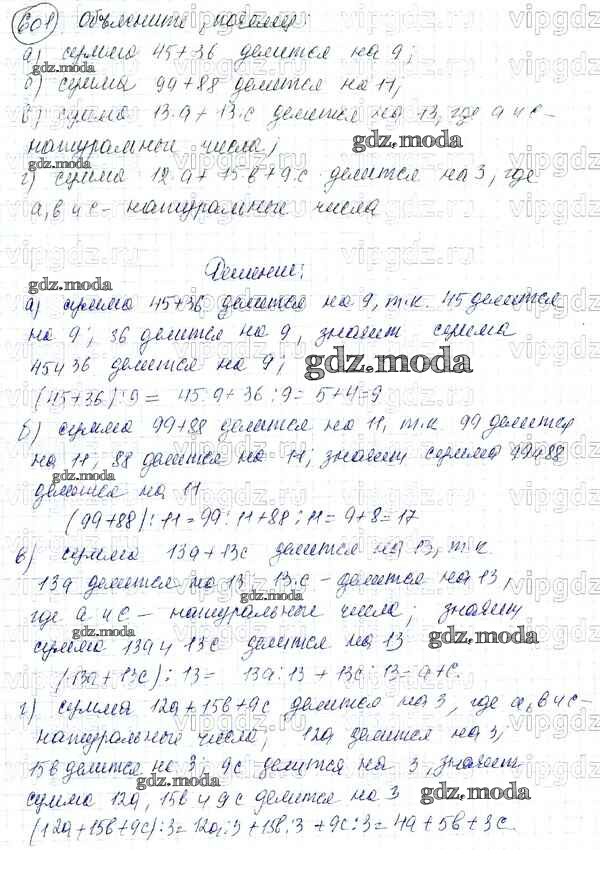 601 Объясните, почему:
а) сумма 45+36 делится на 9;
б) сумма 99+88 делится на 11;
в) сумма 13·а+13·с делится на 13, где а и с-
натуральные числа;
г) сумма 12·а+15в+9с делится на 3, где
а, в и с- натуральные числа
Решение:
а) сумма 45+36 делится на 9, т.к. 45 делится
на 9; 36 делится на 9, значит сумма
45 и 36 делится на 9;
(45+36):9 = 45:9+36:9=5+4=9
б) сумма 99+88 делится на 11, т.к. 99 делится
на 11, 88 делится на 11; значит сумма 99 и 88
делится на 11
(99+88):11=99:11+88:11=9+8=17
в) сумма 13а+13с делится на 13, т.к.
13а делится на 13, 13·с - делится на 13,
где а и с - натуральные числа; значит
сумма 13а и 13с делится на 13
(13а+13с):13= 13а:13+13с:13=а+с.
г) сумма 12а+15в+9с делится на 3, где а, в и с-
натуральные числа; 12а делится на 3;
15в делится на 3; 9с делится на 3, значит
сумма 12а, 15в и 9с делится на 3
(12а+15в+9с):3=12а:3+15в:3+9с:3=4а+5в+3с.
gdz.moda
vipgdz.ru